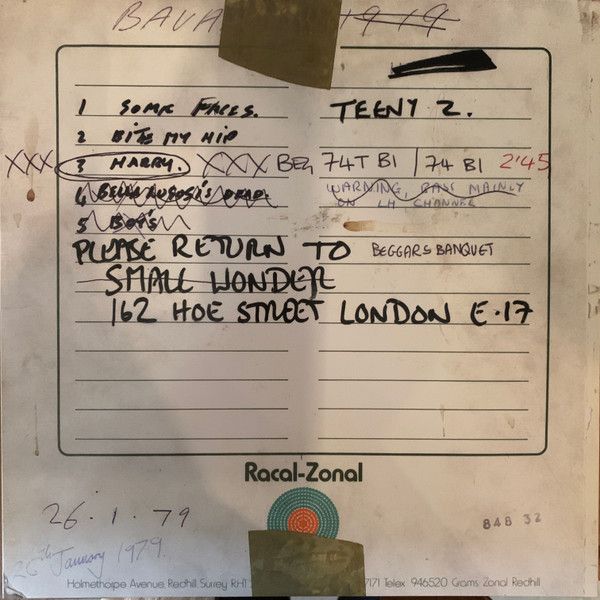 BAVA 1919
1 SOME FACES. TEENY 2.
2 BITE MY HIP
XXX 3 HARRY. XXX BEG 74T B1 / 74 B1 2'45
4 BELA LUGOSI'S DEAD WARNING, BASS MAINLY
ON LH CHANNEL
5 BOYS
PLEASE RETURN TO BEGGARS BANQUET
SMALL WONDER
162 HOE STREET LONDON E.17
Racal-Zonal
26.1.79
848 32
26th January 1979.
Holmethorpe Avenue, Redhill Surrey RH1 7171 Telex 946520 Grams Zonal Redhill